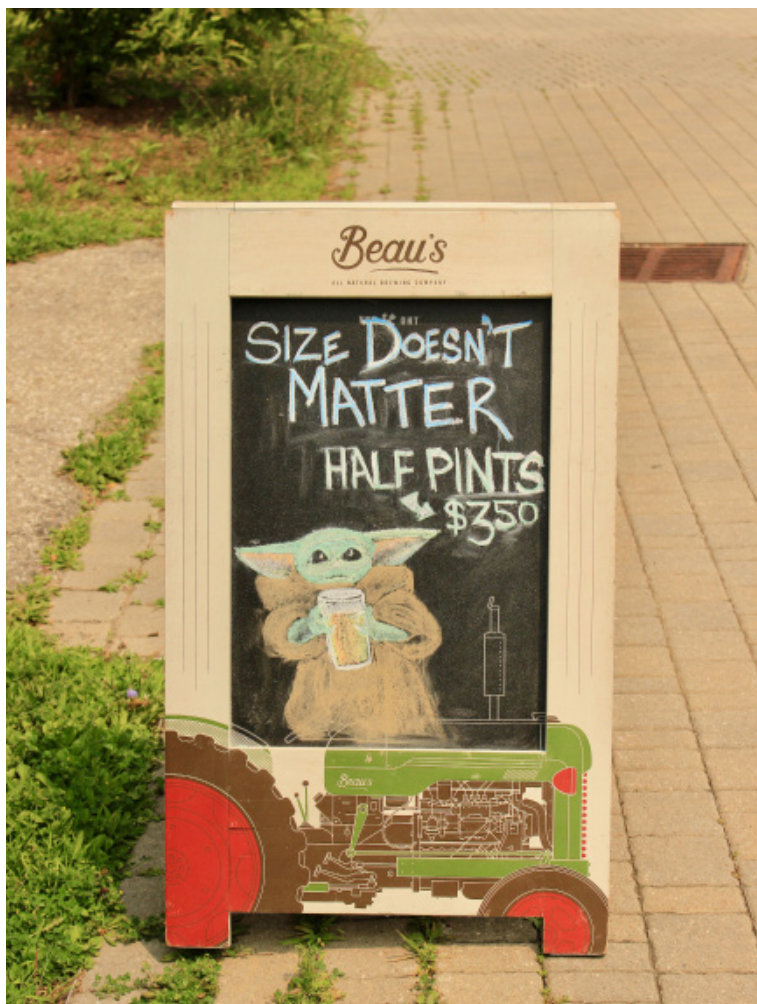 Beau's
ALL NATURAL BREWING COMPANY
SIZE DOESN'T
MATTER
HALF PINTS
$3.50
Beau's